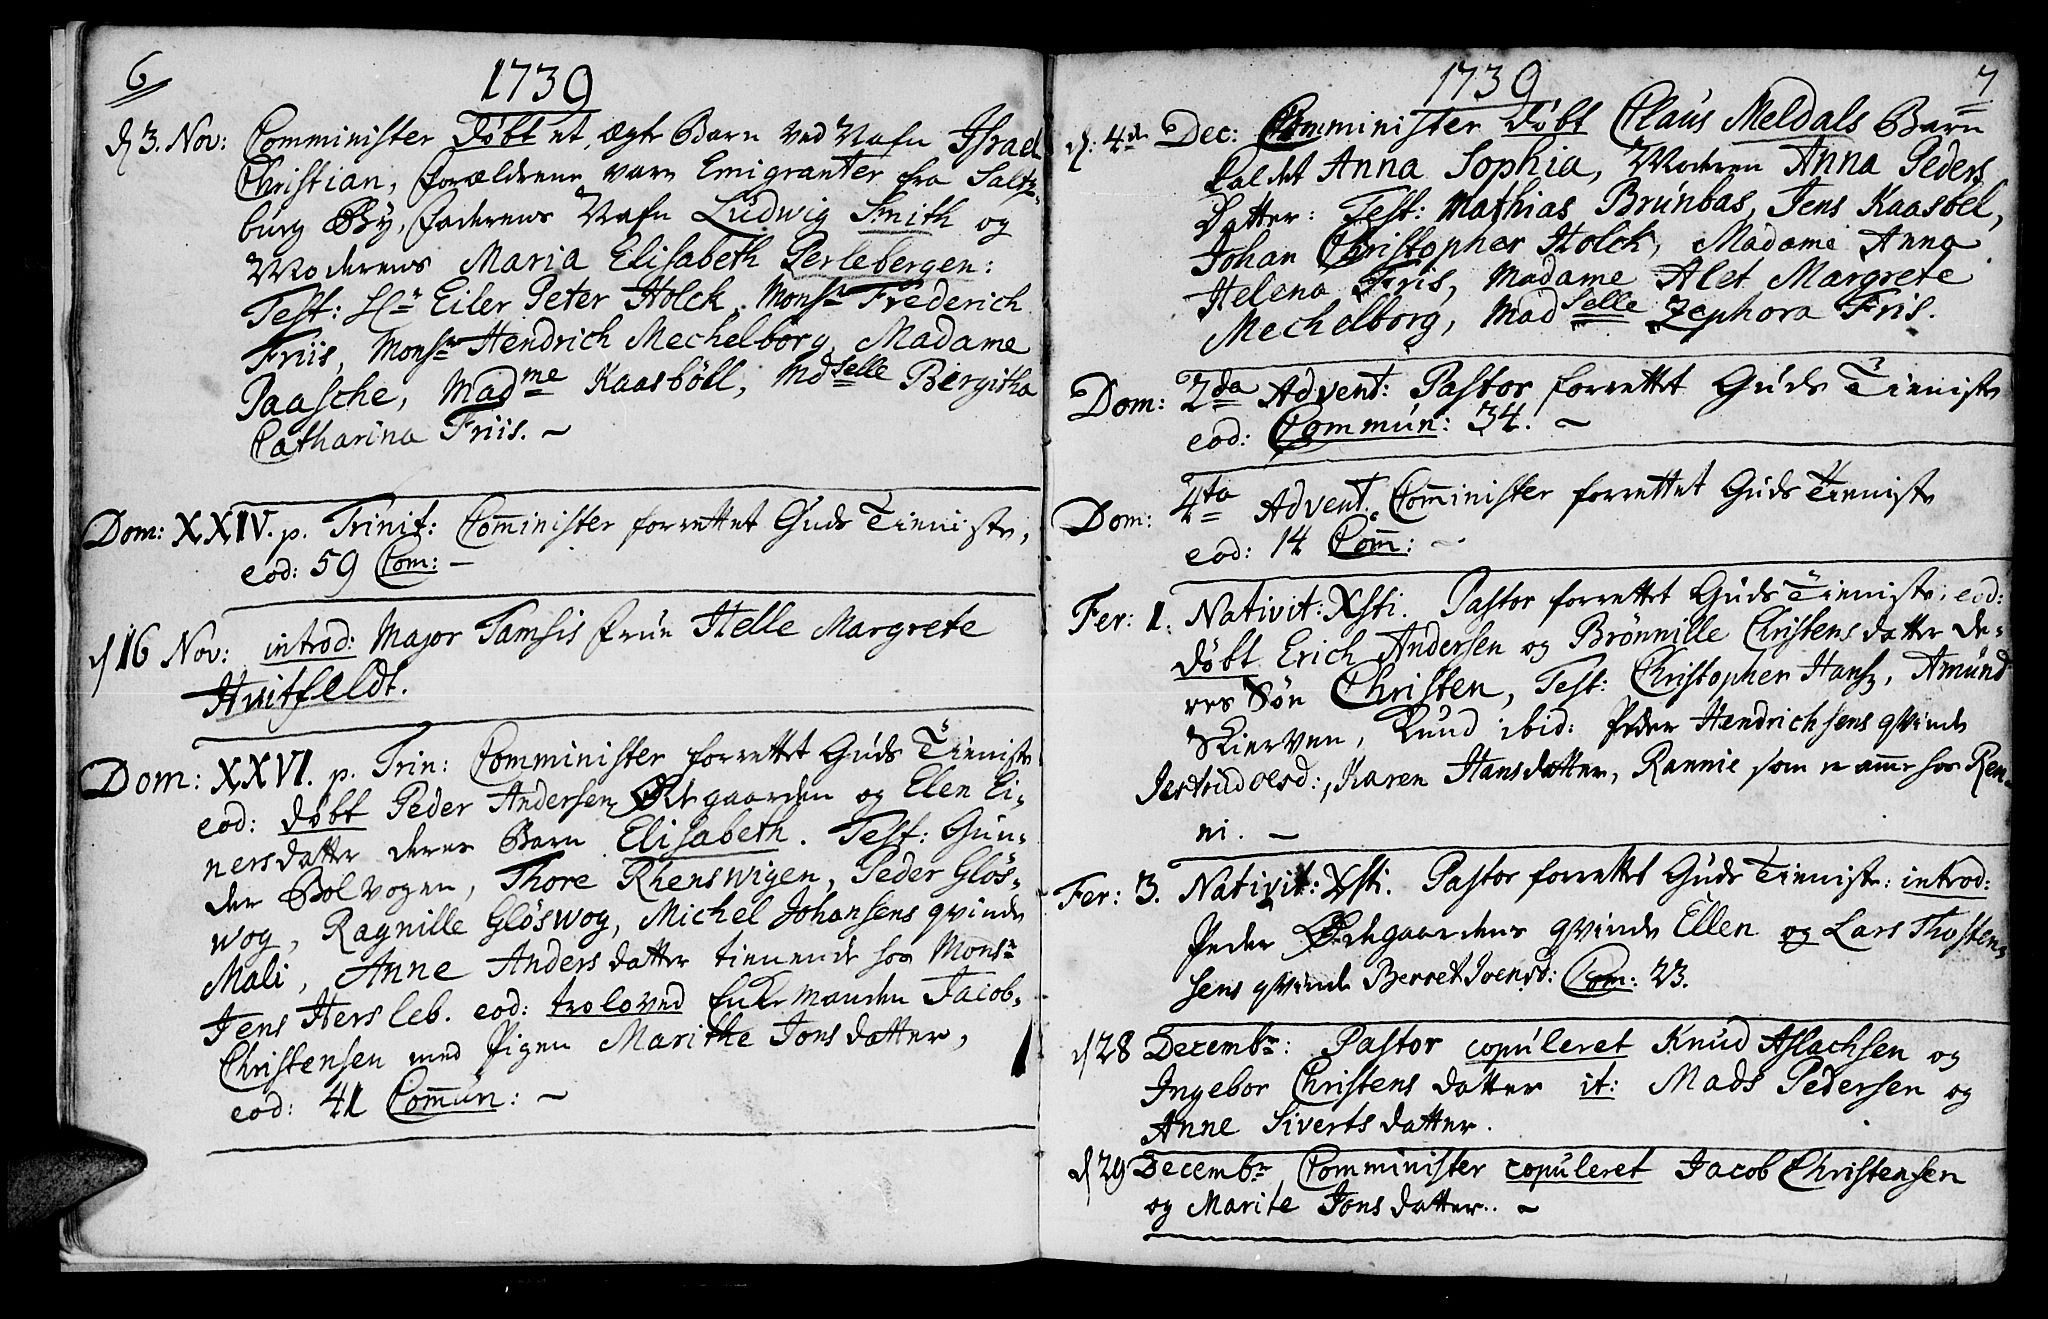 6
1739
d 3. Nov: Comminister döbt et ægte Barn ved Nafn Israel
Christian, forældrene vare Emigranter fra Saltz-
burg By, faderens Nafn Ludwig Smith og
Moderens Maria Elisabeth Perlebergen:
Test: Hr Eiler Peter Holck, Monsr Frederich
Friis, Monsr Hendrich Mechelborg, Madame
Paasche, Madme Kaasböll, Mdselle Bergitha
Catharina Friis. –
Dom: XXIV. p. Trinit: Com̄inister forrettet Guds Tieniste,
eod: 59 Com: –
d 16 Nov: introd: Major Tamsis frue Helle Margrete
Hvitfeldt.
Dom: XXVI. p. Trin: Comminister forrettet Guds Tieniste
eod: döbt Peder Andersen Ødegaarden og Elen Ei-
nersdatter deres Barn Elisabeth. Test: Gun-
der Bolvogen, Thore Rhenswigen, Peder Glös-
wog, Ragnille Glöswog, Michel Johansens qvinde
Mali, Anne Andersdatter tienende hos Monsr
Jens Hersleb. eod: troloved Enkemanden Jacob
Christensen med Pigen Marithe Jonsdatter,
eod: 41 Com̄un: –
1739
7
d: 4de Dec: Comminister döbt Claus Meldals Barn
kaldet Anna Sophia, Moderen Anna Peders
Datter: Test: Mathias Brünbas, Jens Kaasbel,
Johan Christopher Holck, Madame Anna
Helena Fris, Madame Alet Margrete
Mechelborg, Madselle Zephora Fris.
Dom: 2da Advent: Pastor forrettet Guds Tieniste
eod: Commun: 34. –
Dom: 4ta Advent. Com̄inister forrettet Guds Tieniste
eod: 14 Com̄: –
Fer: 1. Nativit: Xsti. Pastor forrettet Guds Tieniste: eod:
döbt Erich Andersen og Brönnille Christensdatter de-
res Sön Christen, Test: Christopher Hansz, Amund
Skierven, Lund ibid: Peder Hendrichsens qvinde
Jertrud oesd:, Karen Hansdatter, Rannie som er amme hos Ren-
ni. –
Fer: 3. Nativit: Xsti. Pastor forrettet Guds Tieniste: introd:
Peder Ødegaardens qvinde Ellen og Lars Thosten-
sens qvinde Berret Joensd: Com: 23.
d 28 Decembr: Pastor copuleret Knud Aslachsen og
Ingebor Christensdatter it: Mads Pedersen og
Anne Sivertsdatter.
d 29 Decembr Comminister copuleret Jacob Christensen
og Marite Jonsdatter. –